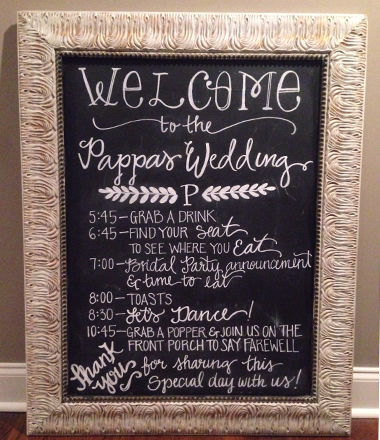 WELCOME
to the
Pappas Wedding
P
5:45-GRAB A DRINK
6:45-FIND YOUR Seat
TO SEE WHERE YOU Eat
7:00-Bridal Party announcement
& time to eat
8:00-TOASTS
8:30-Let's Dance!
10:45-GRAB A POPPER & JOIN US ON THE
FRONT PORCH TO SAY FAREWELL
thank you for sharing this
Special day with us!